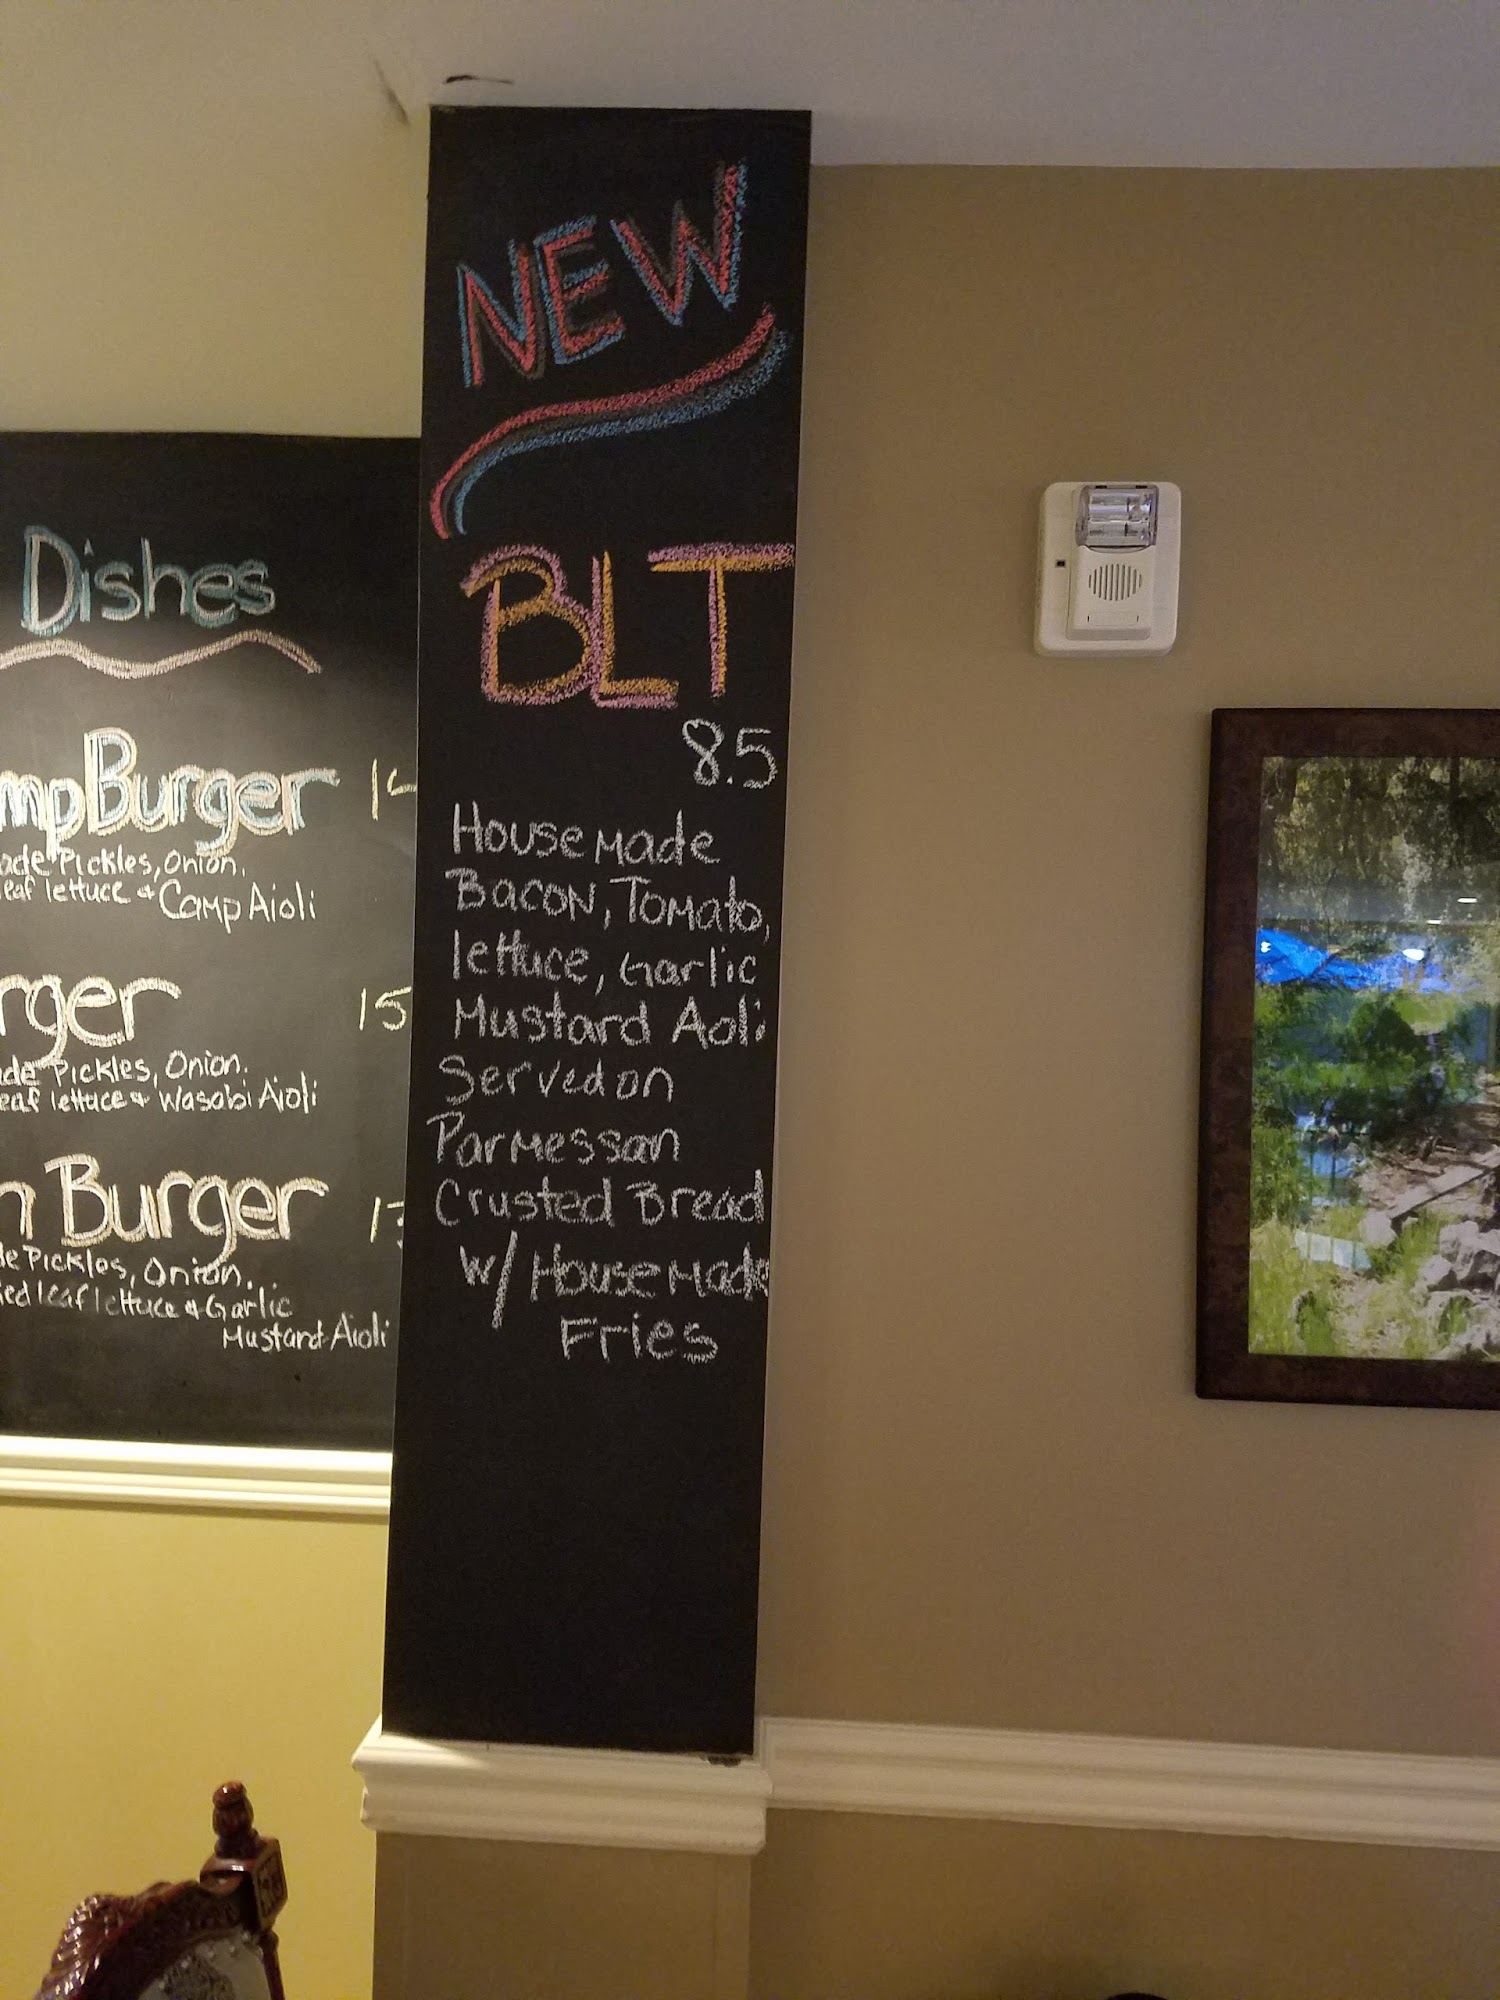 Dishes
Burger
Pickles, Onion.
leaf lettuce & Camp Aioli
15
Pickles, Onion.
lettuce & Wasabi Aioli
Burger
Pickles, Onion.
leaf lettuce & Garlic
Mustard Aioli
NEW
BLT
8.5
House Made
Bacon, Tomato,
lettuce, Garlic
Mustard Aoli
Served on
Parmessan
Crusted Bread
w/ House Made
Fries